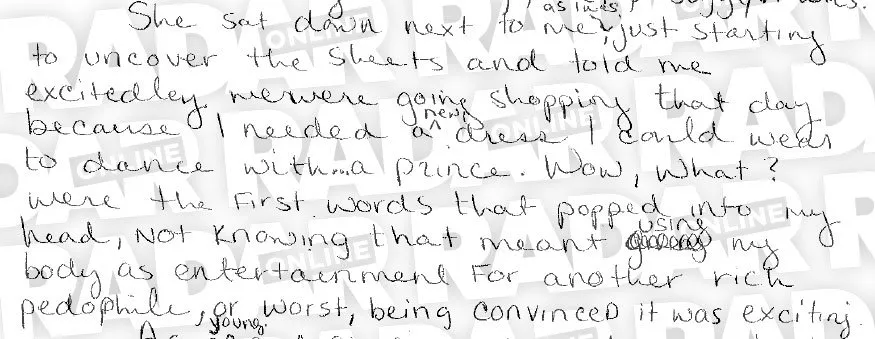 She sat down next to me, as I was just starting
to uncover the sheets and told me
excitedley we were going shopping that day
because I needed a new dress I could wear
to dance with...a prince. Wow, what?
were the first words that popped into my
head, not knowing that meant using my
body as entertainment for another rich
pedophile, or worst, being convinced it was exciting.
young.
RADAR ONLINE